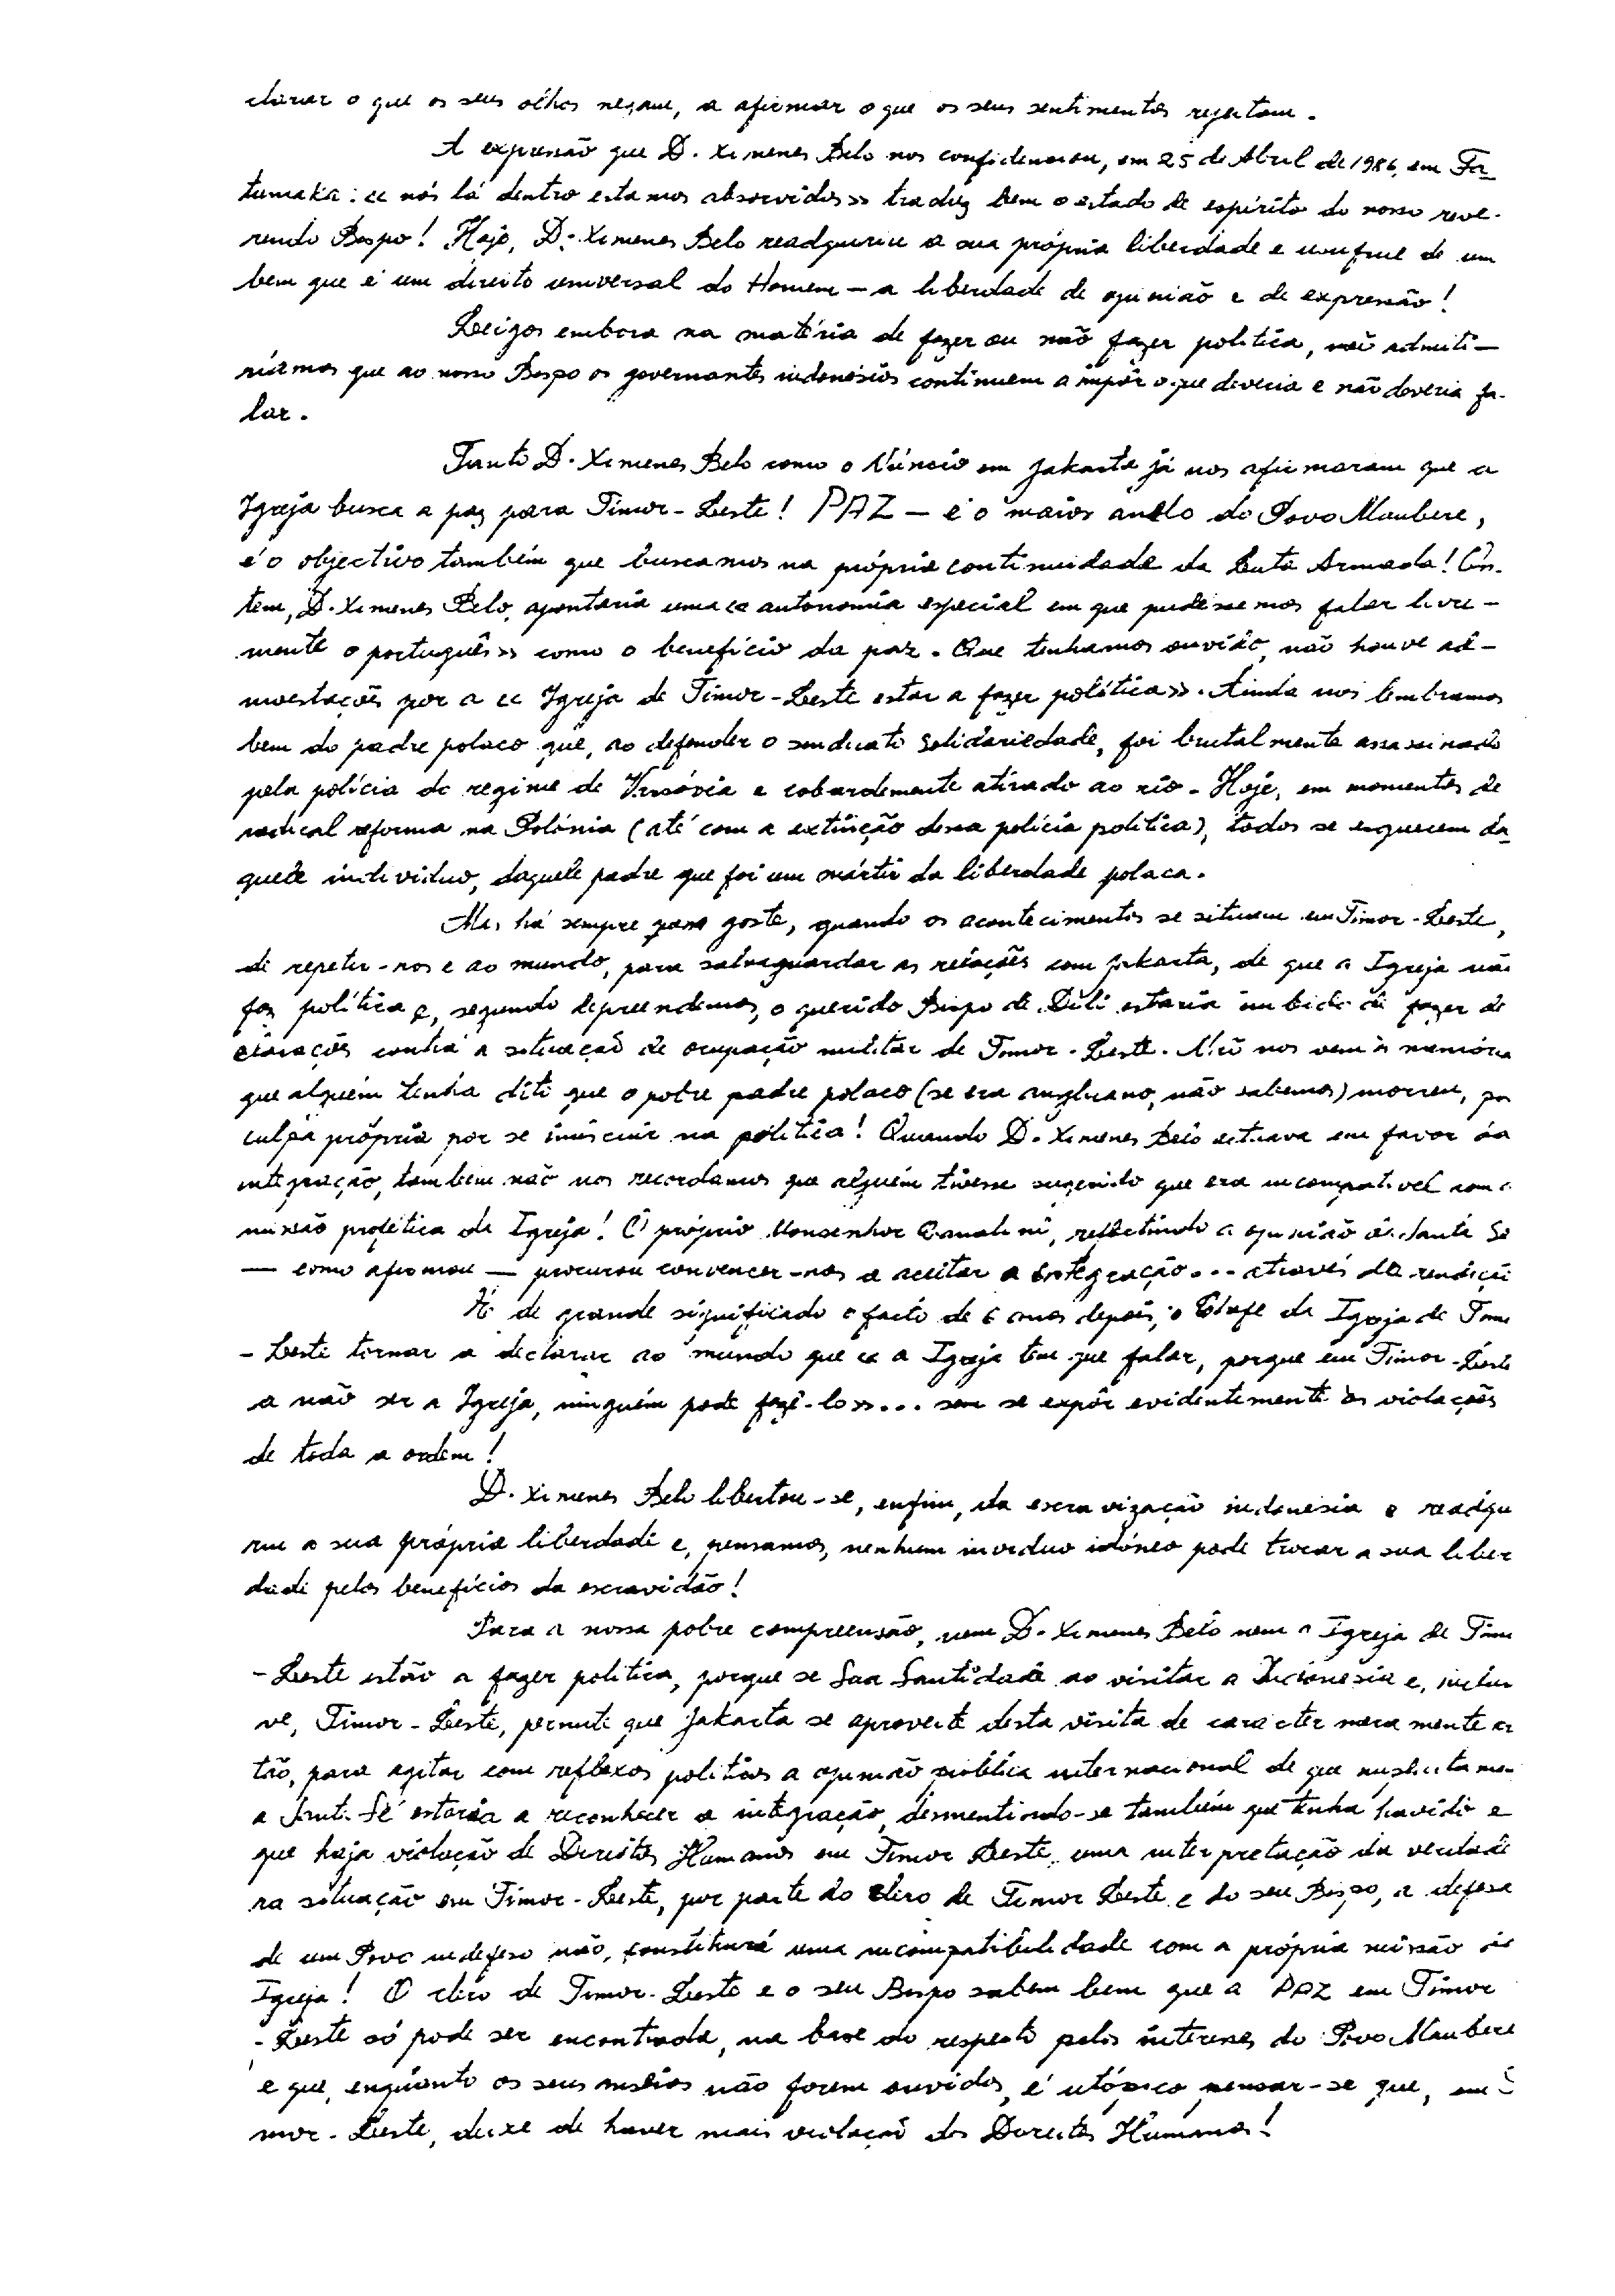 clarar o que os seus olhos negam, a afirmar o que os seus sentimentos rejeitam.
A expressão que D. Ximenes Belo nos confidenciou, em 25 de Abril de 1986, em Fa_
tumaka: «nós lá dentro estamos absorvidos» traduz bem o estado de espírito do nosso reve-
rendo Bispo! Hoje, D. Ximenes Belo readquiriu a sua própria liberdade e usufrue de um
bem que é um direito universal do Homem — a liberdade de opinião e de expressão!
Leigos embora na matéria de fazer ou não fazer política, não admiti—
ríamos que ao nosso Bispo os governantes indonésios continuem a impôr o que deveria e não deveria fa-
lar.
Tanto D. Ximenes Belo como o Núncio em Jakarta já nos afirmaram que a
Igreja busca a paz para Timor-Leste! PAZ — é o maior anelo do Povo Maubere,
é o objectivo também que buscamos na própria continuidade da Luta Armada! On-
tem, D. Ximenes Belo, apontaria uma «autonomia especial em que pudessemos falar livre-
mente o português» como o benefício da paz. Que tenhamos ouvido, não houve ad-
moestações por a «Igreja de Timor-Leste estar a fazer política». Ainda nos lembramos
bem do padre polaco que, ao defender o sindicato Solidariedade, foi brutalmente assassinado
pela polícia do regime de Varsóvia e cobardemente atirado ao rio. Hoje, em momentos de
radical reforma na Polónia (até com a extinção dessa polícia política), todos se esquecem da_
quele indivíduo, daquele padre que foi um mártir da liberdade polaca.
Mas há sempre goste, quando os acontecimentos se situam em Timor-Leste,
de repetir-nos e ao mundo, para salvaguardar as relações com Jakarta, de que a Igreja não
faz política e, segundo depreendemos, o querido Bispo de Dili estaria inibido de fazer de
clarações contra a situação de ocupação militar de Timor-Leste. Não nos vem à memória
que alguém tenha dito que o pobre padre polaco (se era anglicano, não sabemos) morreu, por
culpa própria por se imiscuir na política! Quando D. Ximenes Belo estava em favor da
integração, também não nos recordamos que alguém tivesse sugerido que era incompatível com a
missão profética da Igreja! O próprio Monsenhor Canalini, reflectindo a opinião da Santa Sé
— como afirmou — procurou convencer-nos a aceitar a integração... através da rendição
É de grande significado o facto de 6 anos depois, o Chefe da Igreja de Timor
-Leste tornar a declarar ao mundo que «a Igreja tem que falar, porque em Timor-Leste
a não ser a Igreja, ninguém pode fazê-lo»... sem se expôr evidentemente às violações
de toda a ordem!
D. Ximenes Belo libertou-se, enfim, da escravização indonésia e readqu
riu a sua própria liberdade e, pensamos, nenhum indivíduo idóneo pode trocar a sua liber
dade pelos benefícios da escravidão!
Para a nossa pobre compreensão, nem D. Ximenes Belo nem a Igreja de Timor
-Leste estão a fazer política, porque se Sua Santidade ao visitar a Indonésia e, inclusi
ve, Timor-Leste, permite que Jakarta se aproveite desta visita de carácter meramente cris
tão, para agitar com reflexos políticos a opinião pública internacional de que implicitamente
a Santa Sé estaria a reconhecer a integração, desmentindo-se também que tenha havido e
que haja violação de Direitos Humanos em Timor Leste, uma interpretação da verdadei
ra situação em Timor-Leste, por parte do clero de Timor Leste e do seu Bispo, a defesa
de um Povo indefeso não, constituirá uma incompatibilidade com a própria missão da
Igreja! O clero de Timor-Leste e o seu Bispo sabem bem que a PAZ em Timor
-Leste só pode ser encontrada, na base do respeito pelos interesses do Povo Maubere
e que, enquanto os seus anseios não forem ouvidos, é utópico pensar-se que, em Ti
mor-Leste, deixe de haver mais violação dos Direitos Humanos!